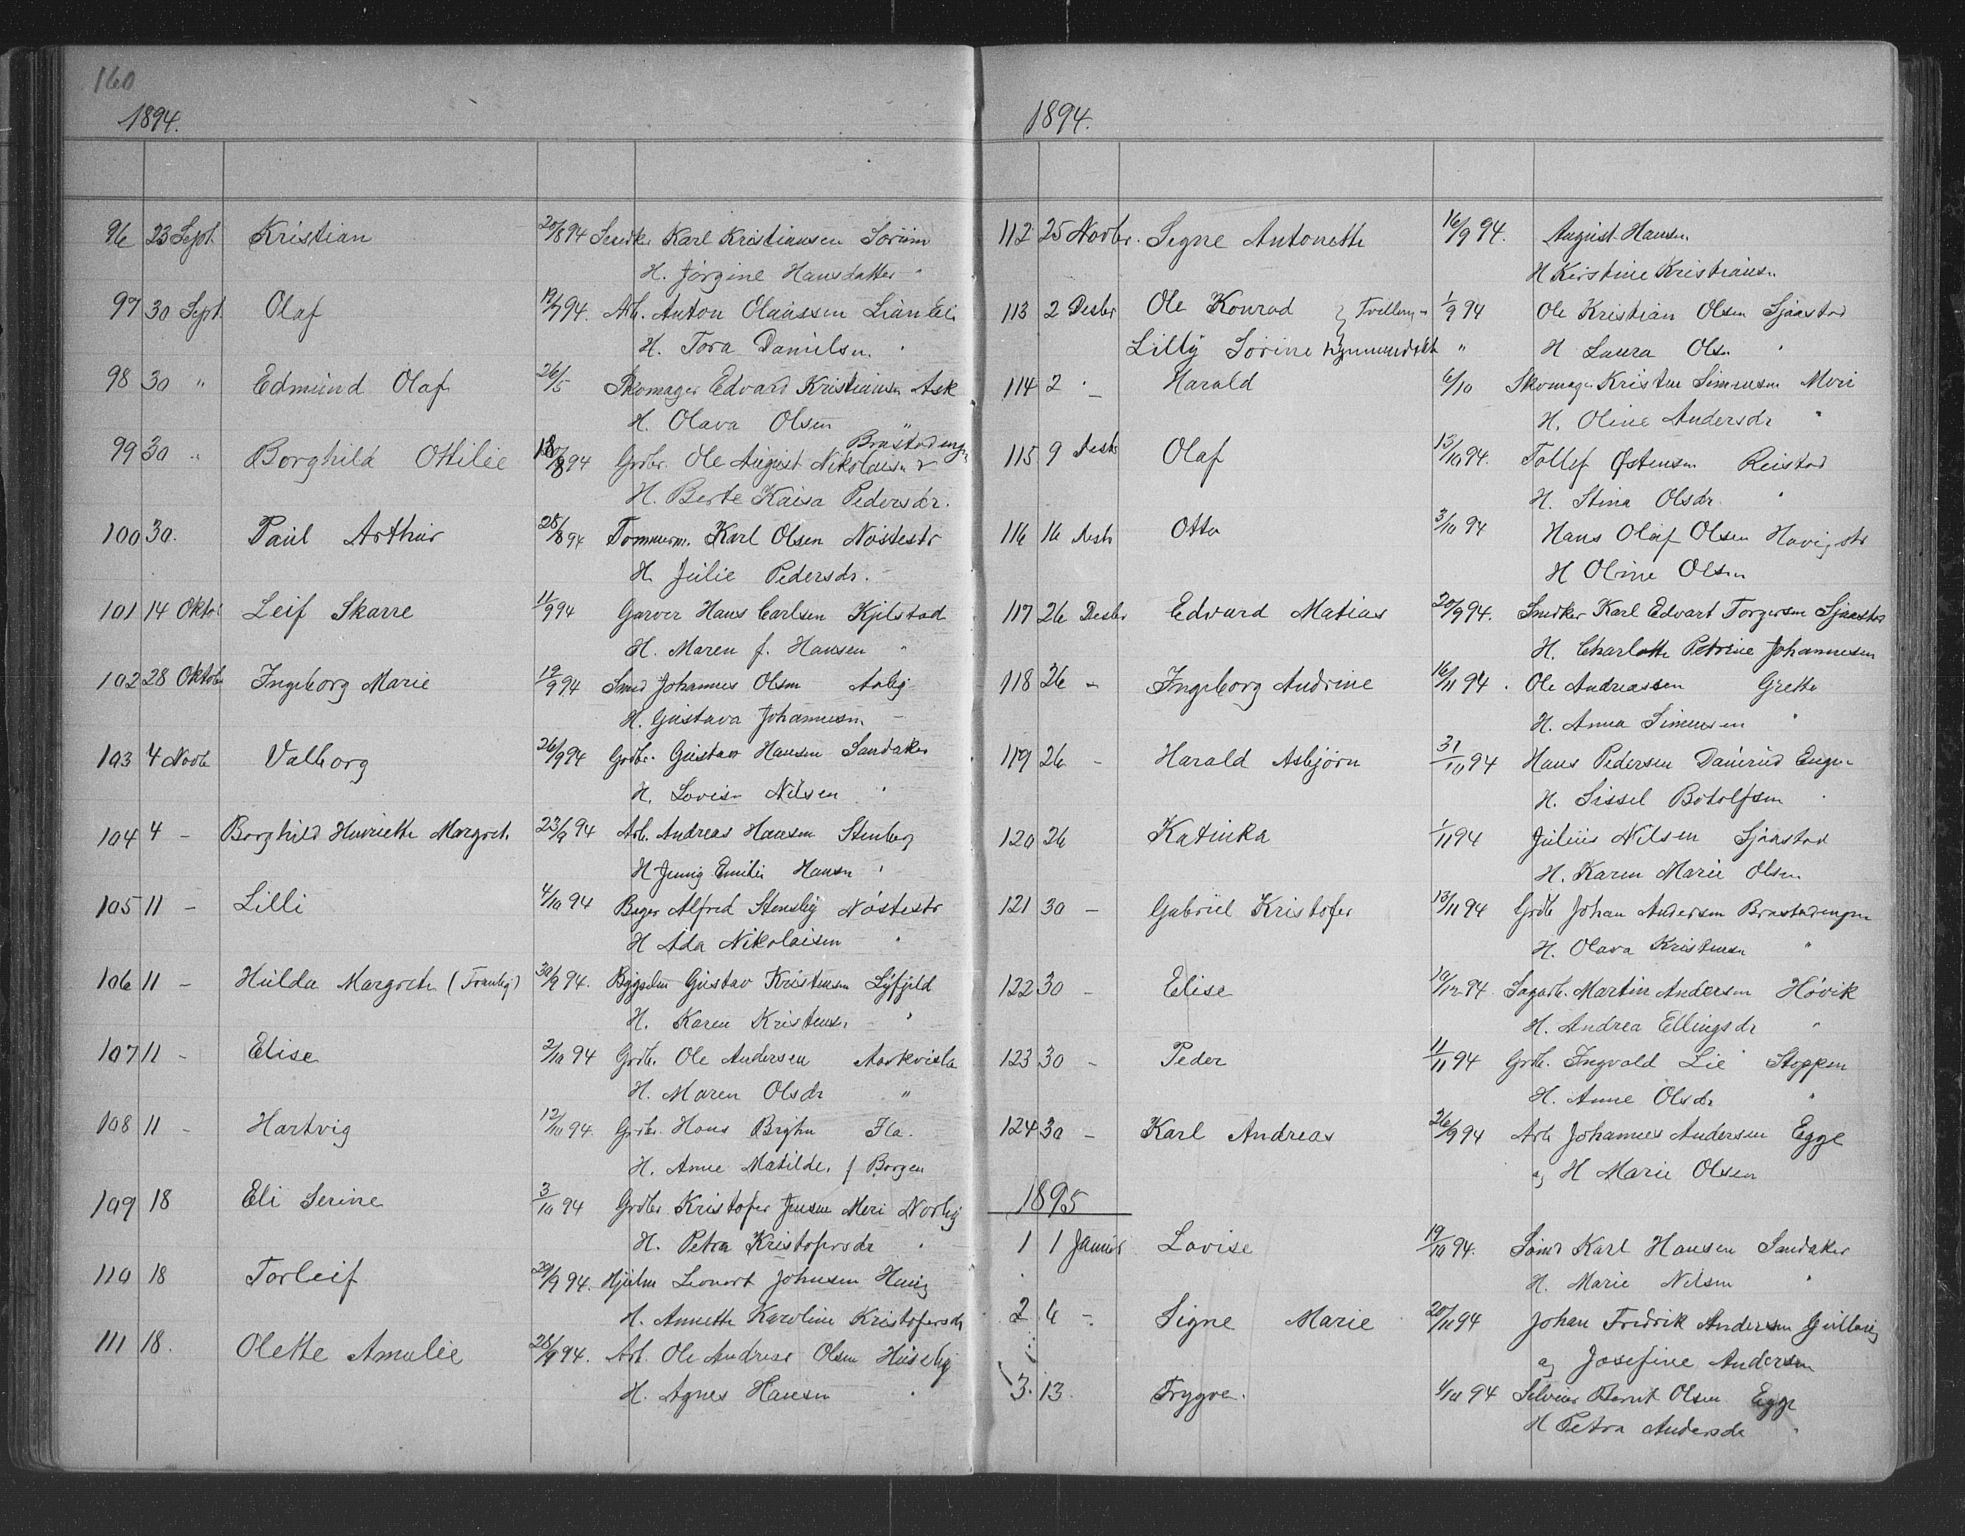 160
1894.
96 23 Sept. Kristian 20/8 94 Snedker Karl Kristiansen Sørum
H. Jørgine Hansdatter "
97 30 Sept. Olaf 19/7 94. Arb. Anton Olaussen
H. Tora Danielsen "
98 30 " Edmund Olaf 26/5 Skomager Edvard Kristiansen Ask
H. Olava Olsen "
99 30 " Borghild Ottilie 94 Grdbr. Ole August Nikolaisen
H. Berte Kaisa Pedersdr.
100 30. Paul Arthur 28/8 94 Tømmerm. Karl Olsen Nøstestr
H. Julie Pedersdr.
101 14 Oktob Leif Skarre 11/9 94 Garver Hans Carlsen Kjilstad
H. Maren f. Hansen "
102 28 Oktob Ingeborg Marie 12/9 94 Smed Johannes Olsen
H. Gustava Johannesen –
103 4 Novb Valborg 26/9 94 Grdbr. Gustav Hansen Sandaker
H. Lovise Nilsen "
104 4 – Borghild Henriette Margreth. 23/9 94 Arb. Andreas Hansen Stenberg
H Jenny Emilie Hansen "
105 11 – Lilli 4/10 94 Bager Alfred Stensby Nøstestr
H Ada Nikolaisen "
106 11 – Hulda Margreth 30/9 94. Gustav Kristensen
H. Karen Kristens. "
107 11 – Elise 2/10 94 Grdb. Ole Andersen
H. Maren Olsdr "
108 11 – Hartvig 12/10 94. Grdbr. Hans
H. Anne Matilde, f Borgen
109 18 Eli Serine 3/10 94 Grdbr Kristofer Jensen Meri Norby
H. Petra Kristofersdr "
110 18 Torleif 29/9 94. Lenart Johnsen
H. Annette Karoline Kristofersdr
111 18. Olette Amalie 28/9 94. Arb. Ole Andreas Olsen Huseby
H. Agnes Hansen "
1894.
112 25 Novbr. Signe Antonette 16/9 94. August Hansen.
H Kirstine Kristians.n
113 2 Desbr Ole Konrad 1/9 94 Ole Kristian Olsen Sjaastad
Lilly Sørine " H Laura Olsn "
114 2 " – Harald 6/10 Skomager Kristen Simensen Meri
H. Oline Andersdr "
115 9 Desb Olaf 13/10 94. Tollef Østensen Reistad
H. Stina Olsdr. "
116 16 Desb Otto 3/10 94 Hans Olaf Olsen
H Oline Olsen
117 26 Desbr Edvard Matias 20/9 94. Snedker Karl Edvart Torgersen Sjaastad
H. Charlotte Petrine Johannesen
118 26 – Ingeborg Andrine 16/11 94. Ole Andreassen Grette
H. Anna Simensen "
119 26 – Harald Asbjørn 31/10 94 Hans Pedersen
H. Sissel Botolfsen "
120 26 Katinka 1/11 94 Julius Nilsen Sjaastad
H. Karen Marie Olsen
121 30 – Gabriel Kristofer 13/11 94 Grdb Johan Andersen Brastadengen
H. Olava Kristensen "
122 30 – Elise 10/12 94. Sagarb. Martin Andersen Høvik
H. Andrea Ellingsdr "
123 30 – Peder 11/11 94 Grdb. Ingvald Lie Stoppen
H. Anne Olsdr "
124 30 – Karl Andreas 26/9 94 Arb Johannes Andersen Egge
og H Marie Olsen
1895
1 1 Januar Lovise 19/10 94. Karl Hansen Sandaker
H. Marie Nilsen "
2 6 –. Signe Marie 20/11 94 Johan Fredrik Andersen
og Josefine Andersen
3. 13. Trygve. 1/10 94 Bernt Olsen Egge
H Petra Andersdr "